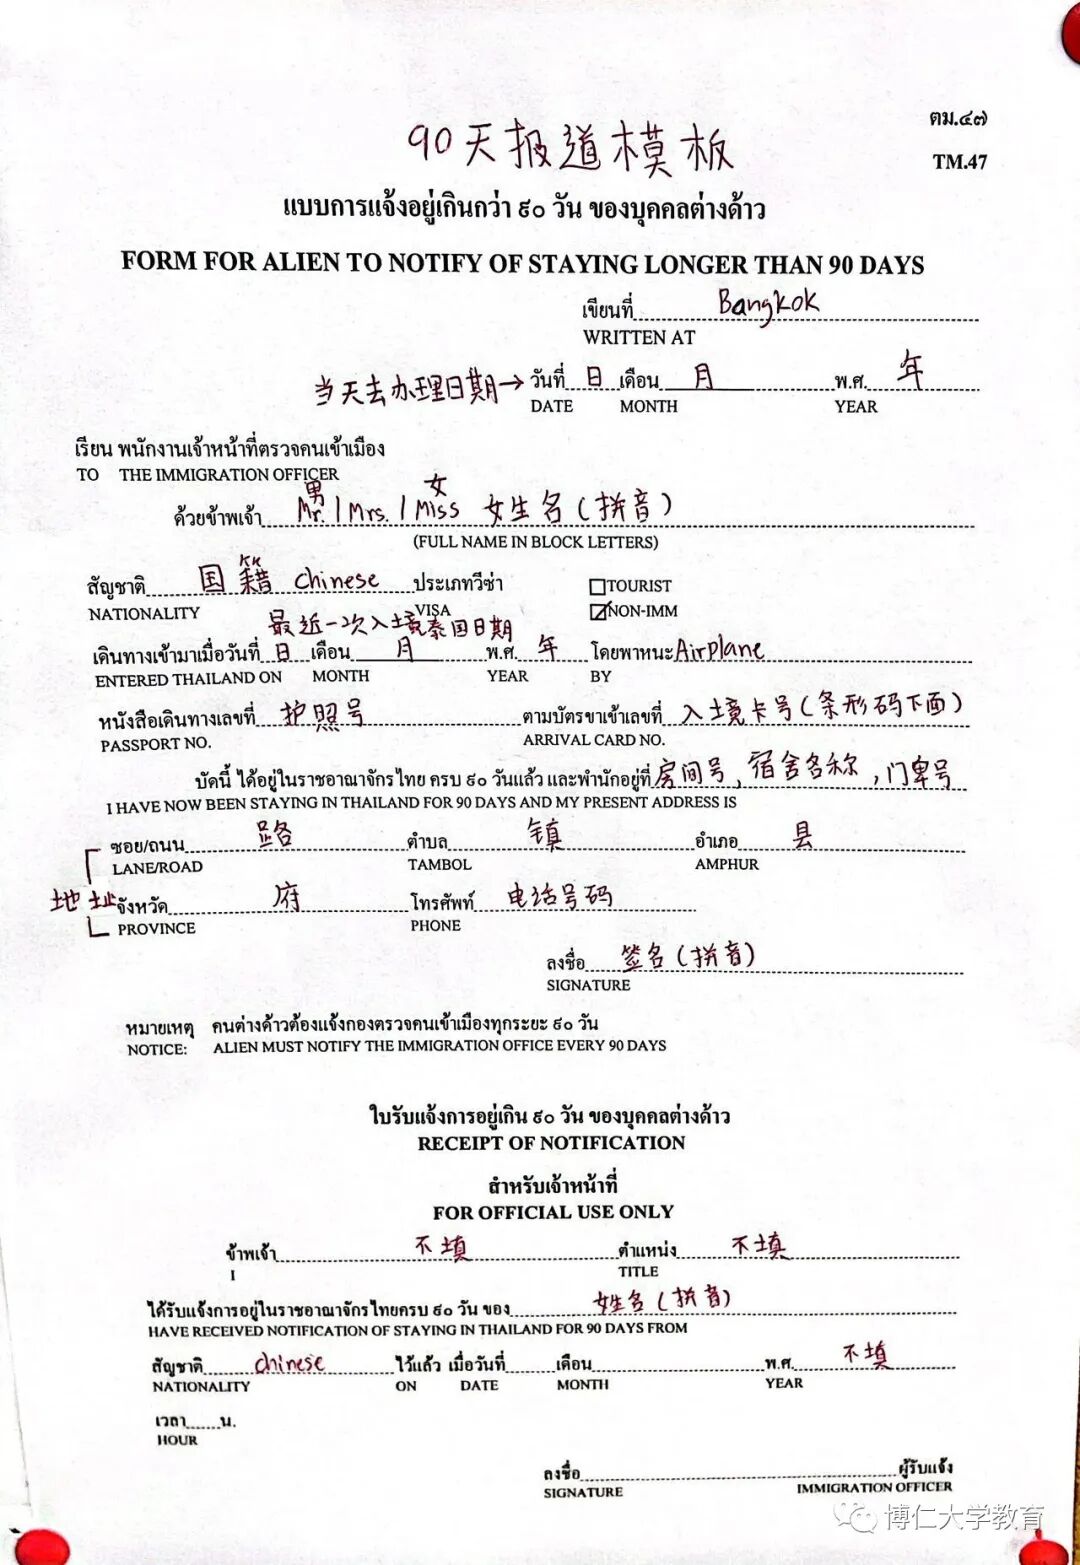 ตม.๔๗
90天报道模板
TM.47
แบบการแจ้งอยู่เกินกว่า ๙๐ วัน ของบุคคลต่างด้าว
FORM FOR ALIEN TO NOTIFY OF STAYING LONGER THAN 90 DAYS
เขียนที่ Bangkok
WRITTEN AT
当天去办理日期→ วันที่ 日 เดือน 月 พ.ศ. 年
DATE MONTH YEAR
เรียน พนักงานเจ้าหน้าที่ตรวจคนเข้าเมือง
TO THE IMMIGRATION OFFICER
男 女
ด้วยข้าพเจ้า Mr. / Mrs. / Miss 女生名(拼音)
(FULL NAME IN BLOCK LETTERS)
สัญชาติ 国籍 chinese ประเภทวีซ่า TOURIST
NATIONALITY VISA NON-IMM
最近一次入境泰国日期
เดินทางเข้ามาเมื่อวันที่ 日 เดือน 月 พ.ศ. 年 โดยพาหนะ Airplane
ENTERED THAILAND ON MONTH YEAR BY
หนังสือเดินทางเลขที่ 护照号 ตามบัตรขาเข้าเลขที่ 入境卡号(条形码下面)
PASSPORT NO. ARRIVAL CARD NO.
บัดนี้ ได้อยู่ในราชอาณาจักรไทย ครบ ๙๐ วันแล้ว และพำนักอยู่ที่ 房间号, 宿舍名称, 门牌号
I HAVE NOW BEEN STAYING IN THAILAND FOR 90 DAYS AND MY PRESENT ADDRESS IS
ซอย/ถนน 路 ตำบล 镇 อำเภอ 县
LANE/ROAD TAMBOL AMPHUR
地址 จังหวัด 府 โทรศัพท์ 电话号码
PROVINCE PHONE
ลงชื่อ 签名(拼音)
SIGNATURE
หมายเหตุ คนต่างด้าวต้องแจ้งกองตรวจคนเข้าเมืองทุกระยะ ๙๐ วัน
NOTICE: ALIEN MUST NOTIFY THE IMMIGRATION OFFICE EVERY 90 DAYS
ใบรับแจ้งการอยู่เกิน ๙๐ วัน ของบุคคลต่างด้าว
RECEIPT OF NOTIFICATION
สำหรับเจ้าหน้าที่
FOR OFFICIAL USE ONLY
ข้าพเจ้า 不填 ตำแหน่ง 不填
I TITLE
ได้รับแจ้งการอยู่ในราชอาณาจักรไทยครบ ๙๐ วัน ของ 姓名(拼音)
HAVE RECEIVED NOTIFICATION OF STAYING IN THAILAND FOR 90 DAYS FROM
สัญชาติ chinese ไว้แล้ว เมื่อวันที่ เดือน พ.ศ. 不填
NATIONALITY ON DATE MONTH YEAR
เวลา......น.
HOUR
ลงชื่อ ผู้รับแจ้ง
SIGNATURE IMMIGRATION OFFICER
博仁大学教育